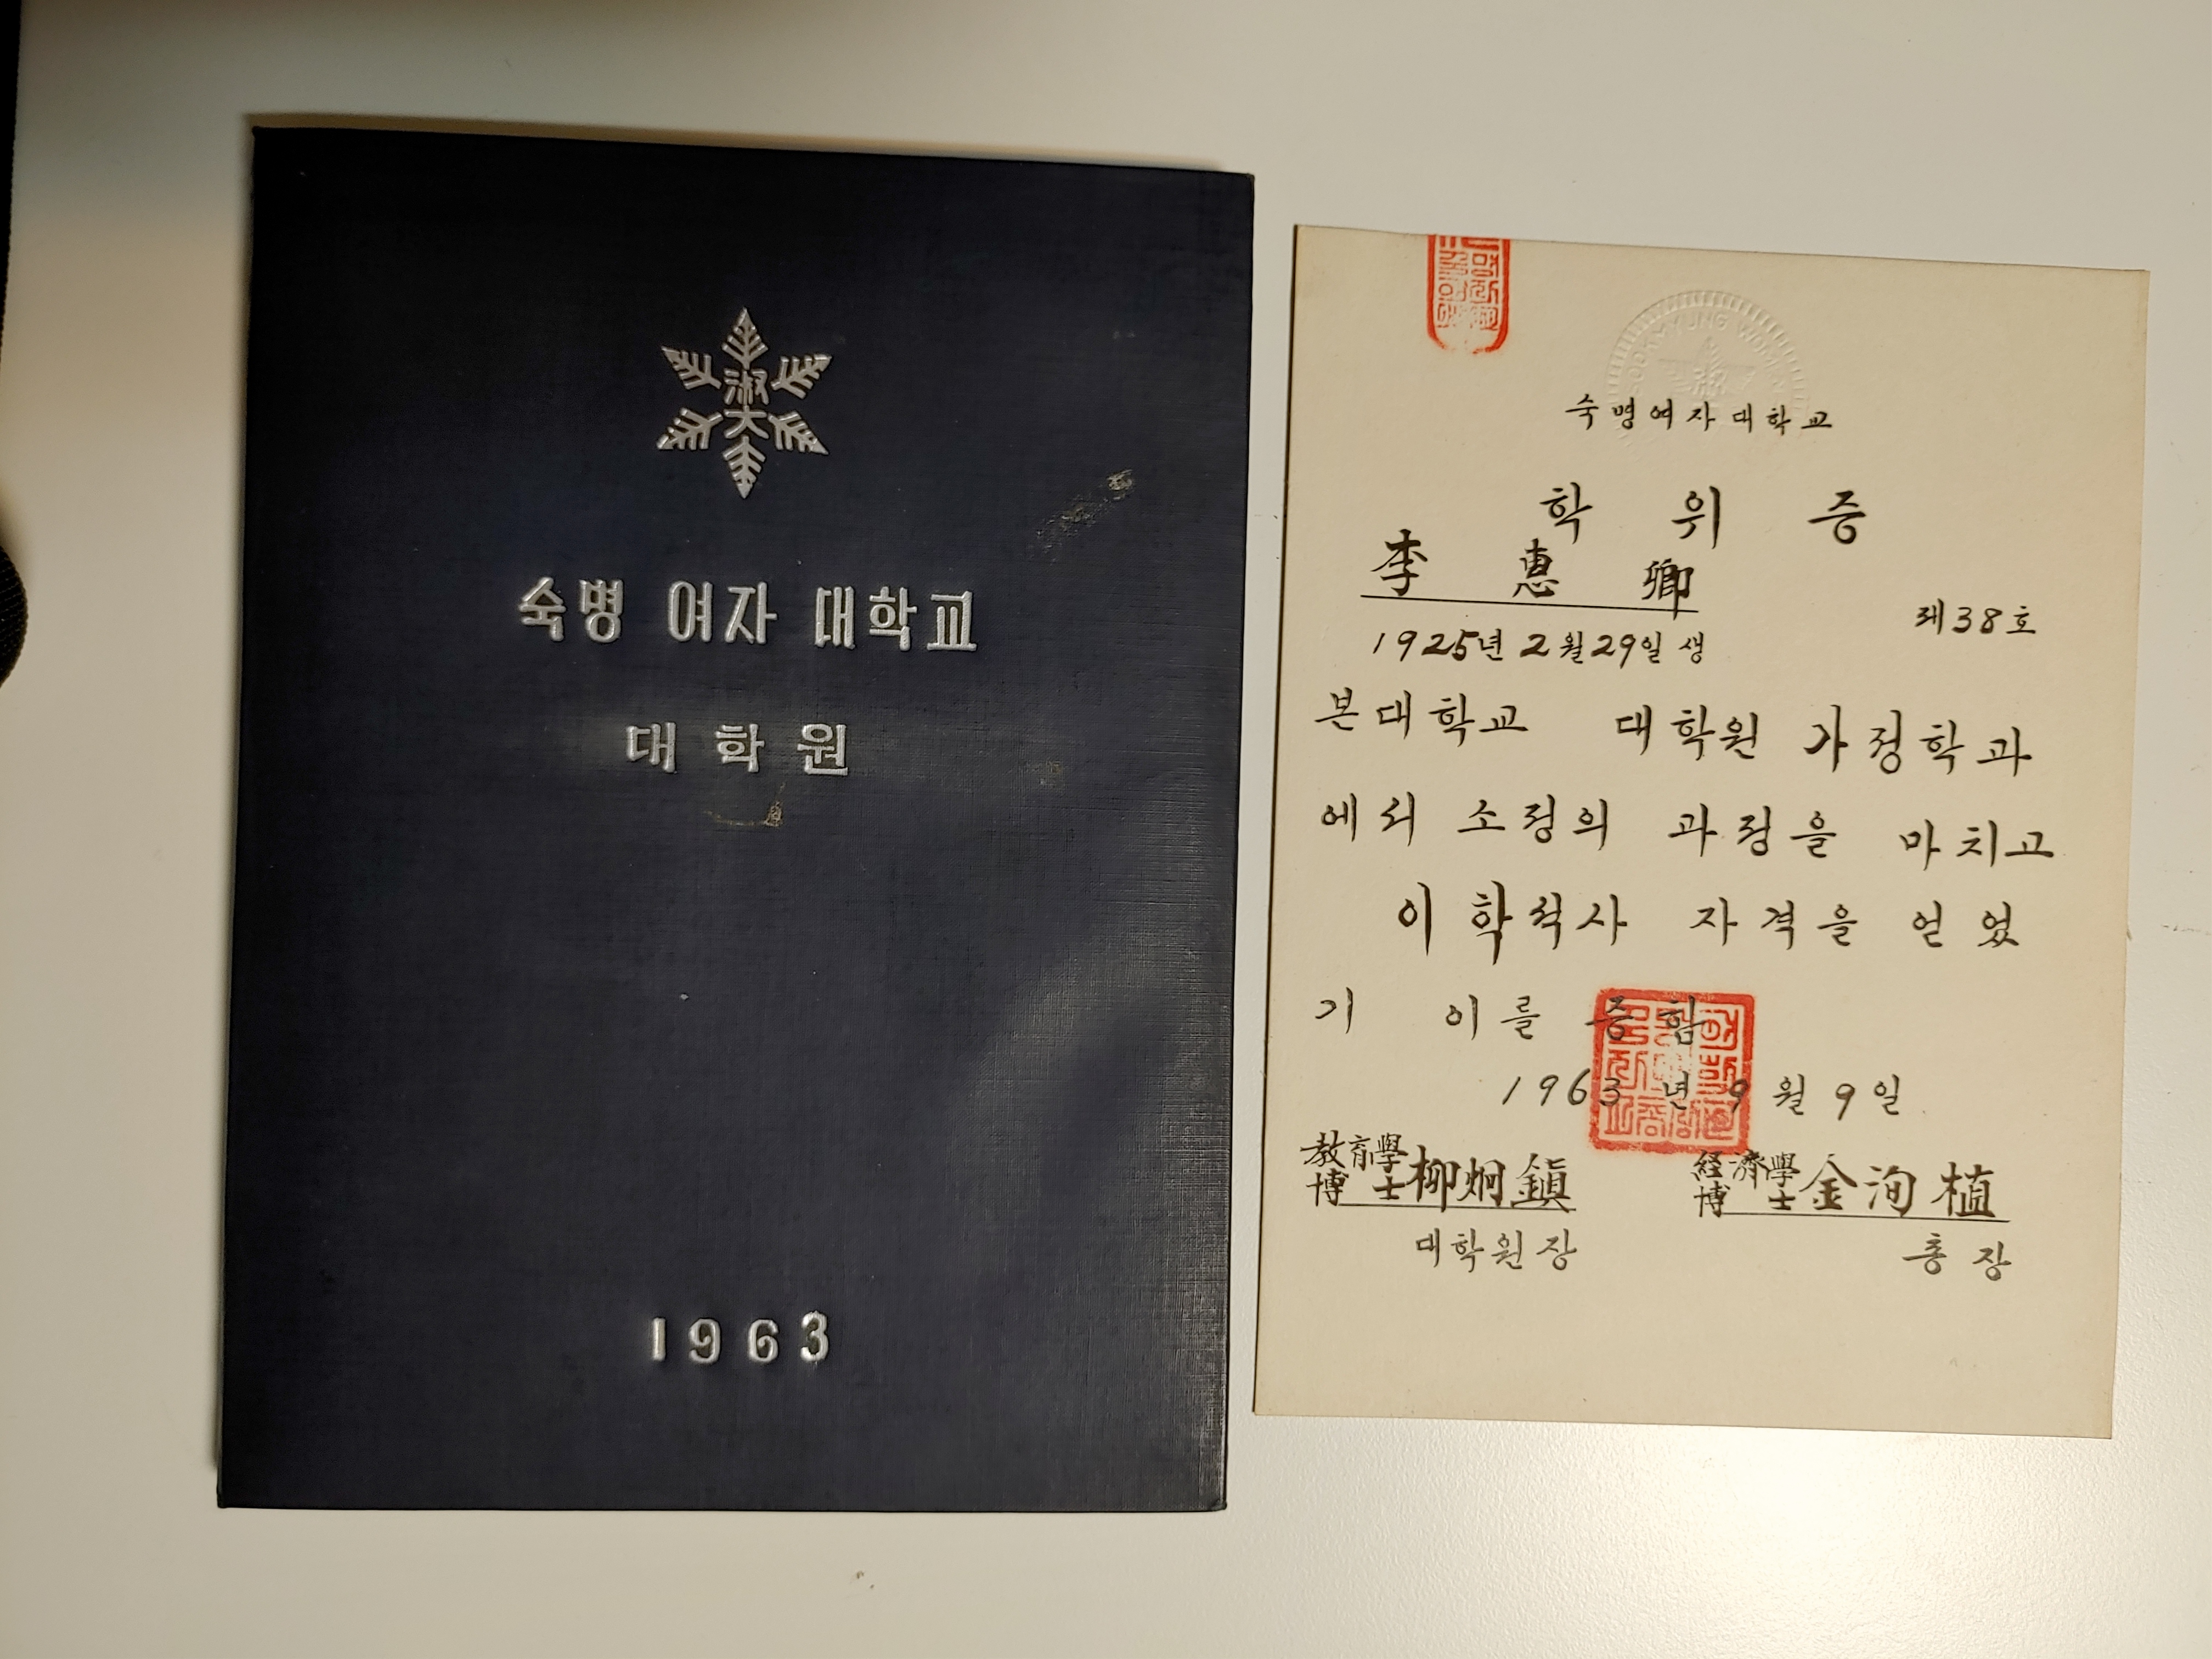 淑大
숙명 여자 대학교
대학원
1963
SOOKMYUNG WOMEN
숙명여자대학교
학 위 증
李 惠 卿
제38호
1925년 2월 29일 생
본대학교 대학원 가정학과
에서 소정의 과정을 마치고
이학석사 자격을 얻었
기 이를 증함
1963 년 9 월 9 일
教育學博士 柳炯鎭
経濟學博士 金洵植
대학원장
총장